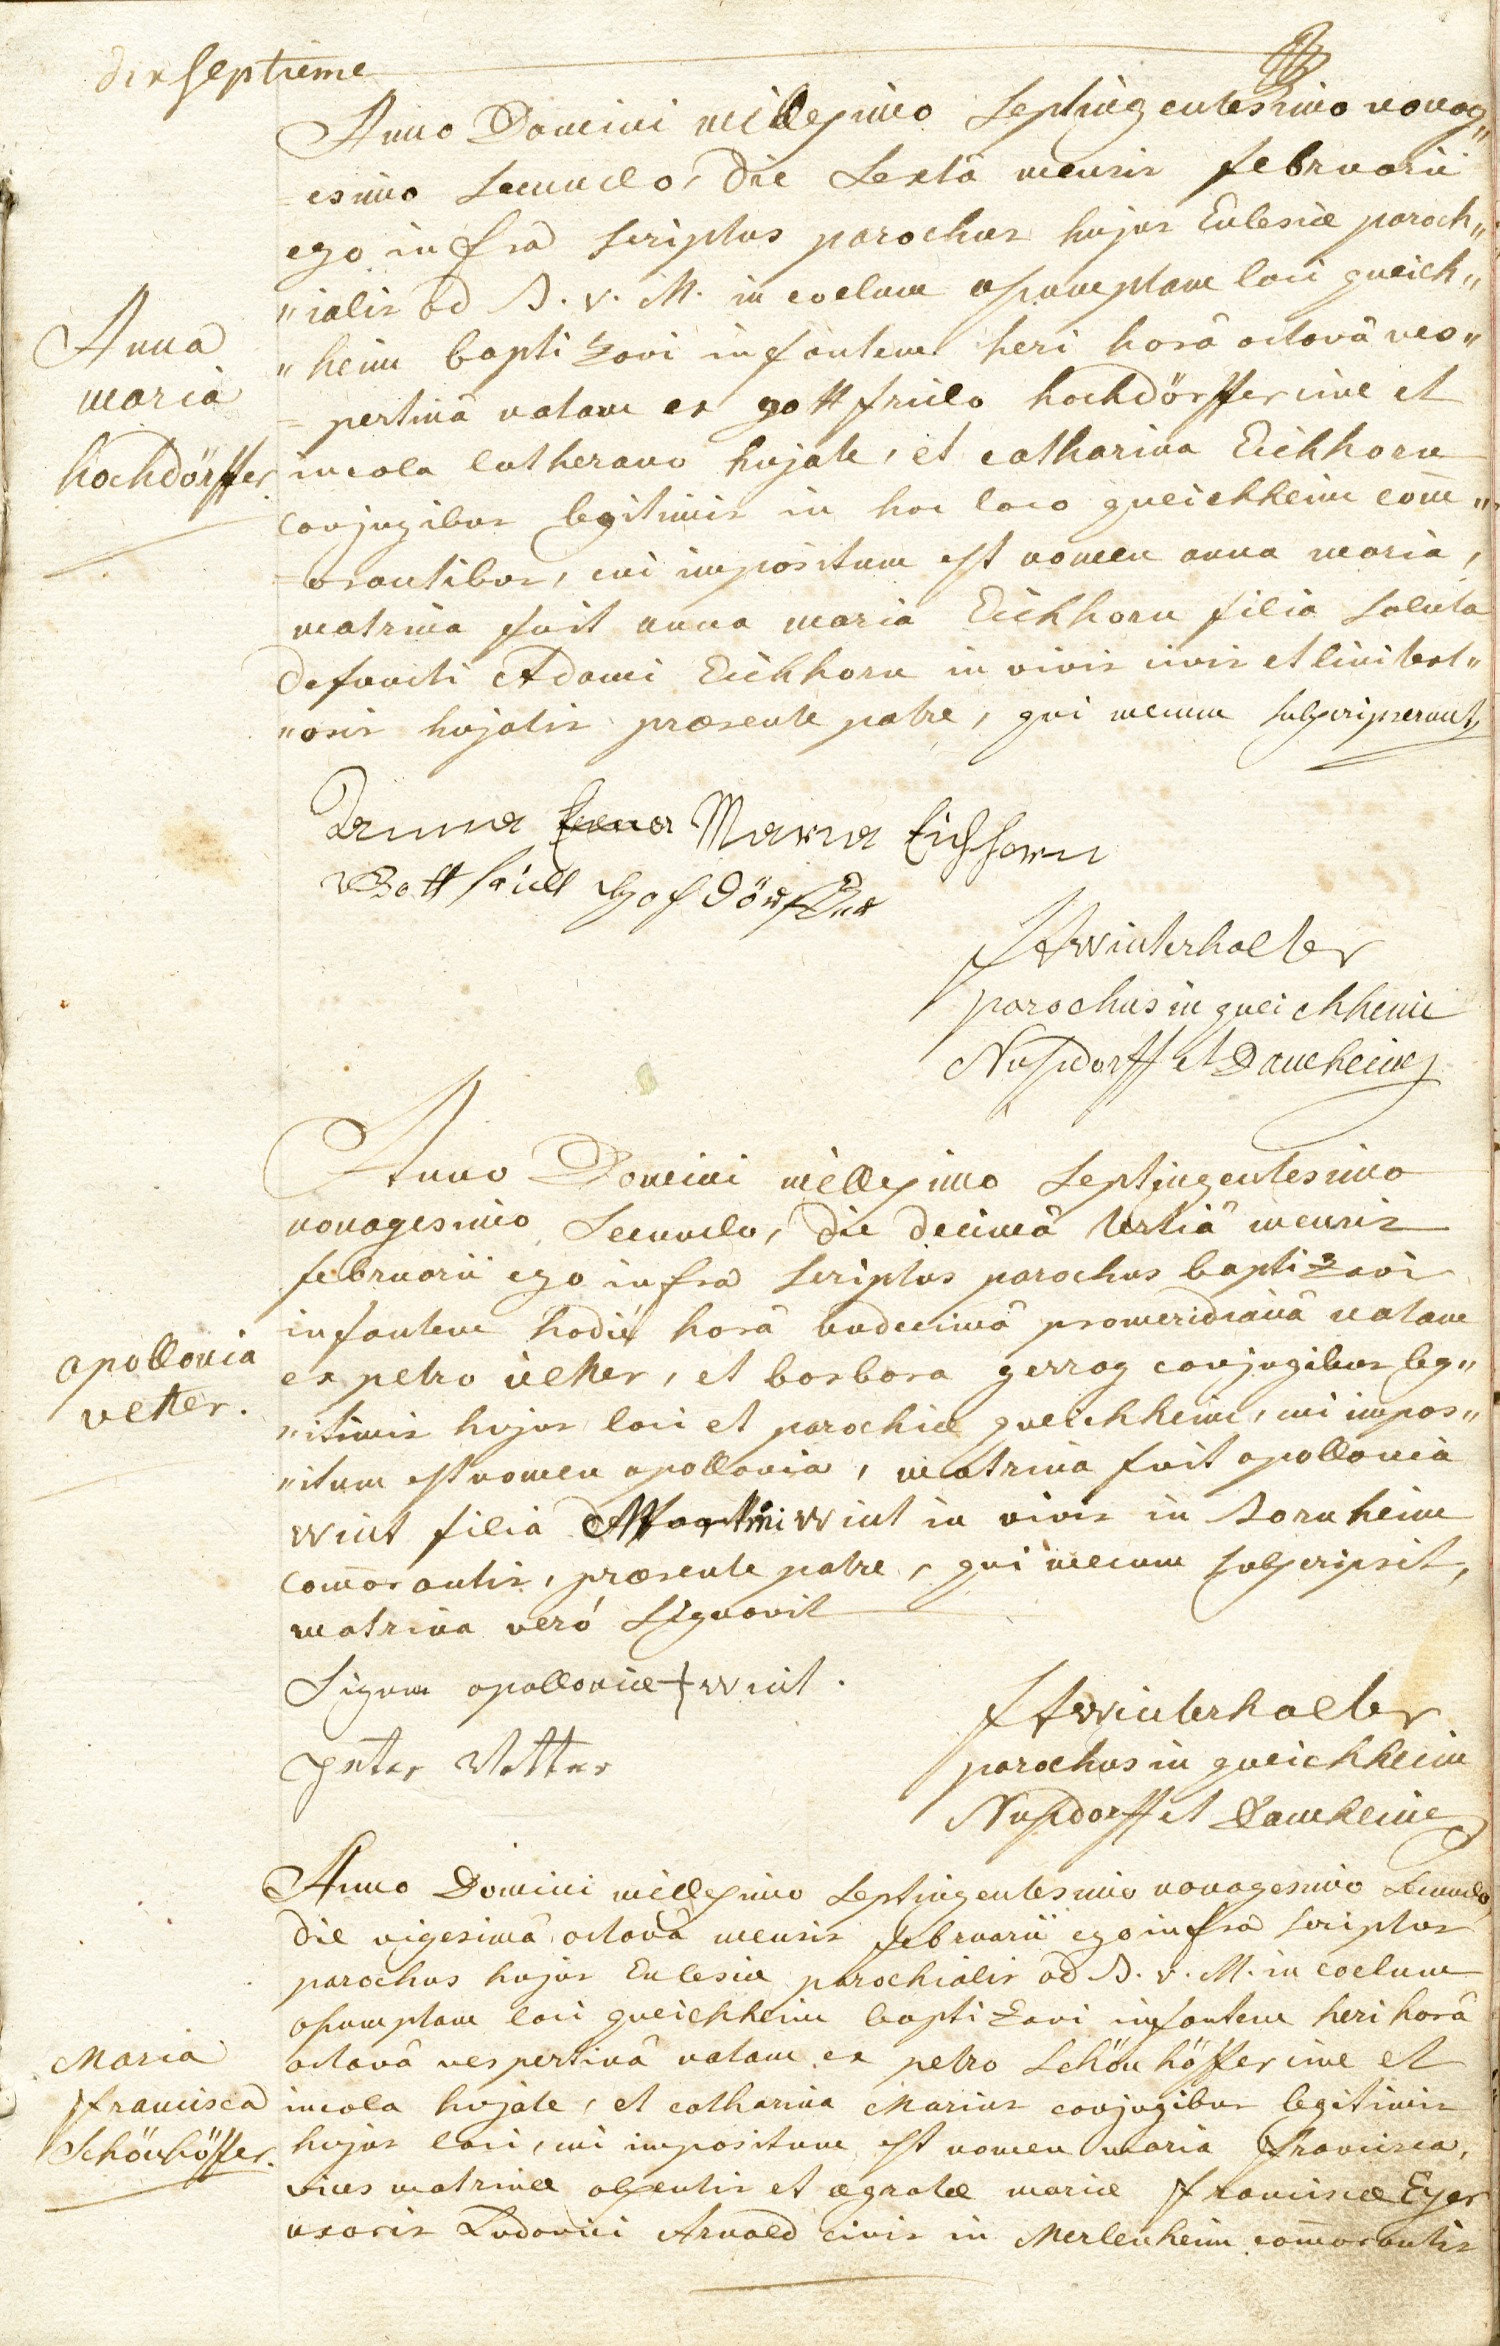 dixseptieme
Anno Domini millesimo septingentesimo nonag„
=esimo secundo, die sextâ mensis februarii
ego infra scriptus parochus hujus Ecclesiæ paroch„
„ialis ad B. v. M. in coelum assumptam loci queich„
Anna maria hochdörffer
„heim baptizavi infantem heri horâ octavâ ves„
=pertinâ natam ex gottfrido hochdörffer cive et
incola lutherano hujate, et catharina Eichhorn
conjugibus legitimis in hoc loco queichheim com̄„
=orantibus, cui impositum est nomen anna maria,
matrina fuit anna maria Eichhorn filia soluta
defuncti Adami Eichhorn in vivis civis et
hujatis præsente patre, qui mecum subscripserunt,
Anna Maria Eichhorn
Gottfridt Hochdörffer
FAwinterhalter
parochus in queichheim
Nusdorff et Damheim
Anno Domini millesimo septingentesimo
nonagesimo secundo, die decimâ tertiâ mensis
februarii ego infra scriptus parochus baptizavi
infantem hodiè horâ undecimâ promeridianâ natam
apollonia vetter.
ex petro vetter, et barbara gerrag conjugibus leg„
„itimis hujus loci et parochiæ queichheim, cui impos„
„itum est nomen apollonia, matrina fuit apollonia
wint filia Martini wint in vivis in Bornheim
com̄orantis, præsente patre, qui mecum subscripsit,
matrina verò signavit
Signum apolloniæ + wint.
Peter Vetter
FAwinterhalter
parochus in queichheim
Nusdorff et Damheim
Anno Domini millesimo septingentesimo nonagesimo secundo
die vigesimâ octavâ mensis februarii ego infra scriptus
parochus hujus Ecclesiæ parochialis ad B. v. M. in coelum
assumptam loci queichheim baptizavi infantem heri horâ
Maria francisca Schönhöffer.
octavâ vespertinâ natam ex petro Schönhöffer cive et
incola hujate, et catharina Marius conjugibus legitimis
hujus loci, cui impositum est nomen maria francisca,
vices matrinæ absentis et ægrotæ mariæ franciscæ Eyer
uxoris Ludovici Arnold civis in Merlenheim com̄orantis